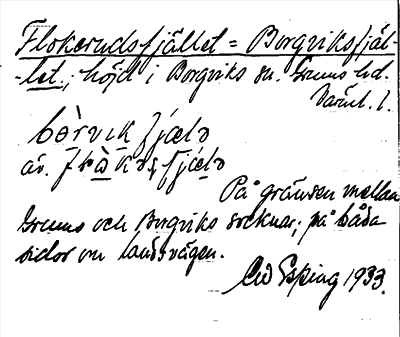 Flokerudsfjället = Borgviksfjäl-
-let, höjd i Borgviks sn. Grums hd.
Värml. l.
bòrvɩk fjælə
av. fjælə
På gränsen mellan
Grums och Borgviks socknar; på båda
sidor om landsvägen.
Esping 1933.